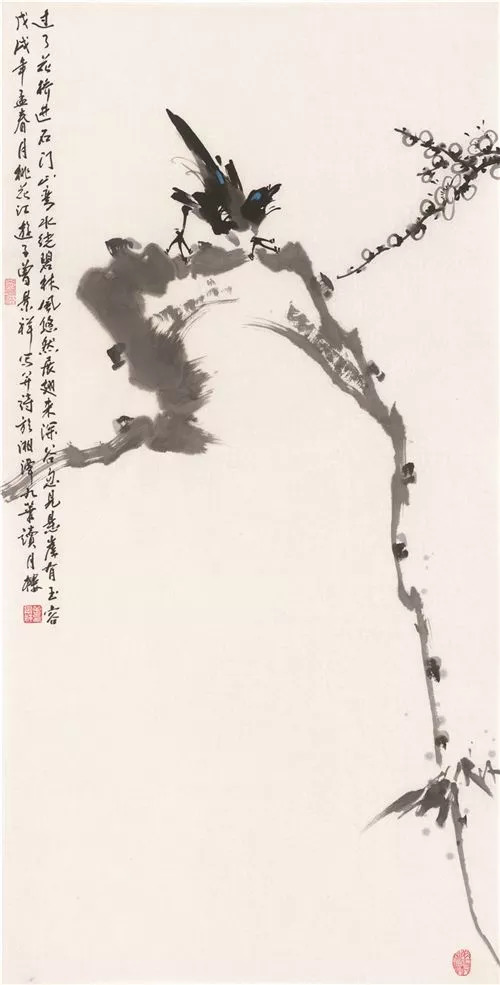 过了花桥进石门山垂水绕碧林风悠然展翅来深谷忽见悬崖有玉容
戊戌年孟春月桃花江遊子曾景祥写并诗於湘潭九華讀月楼